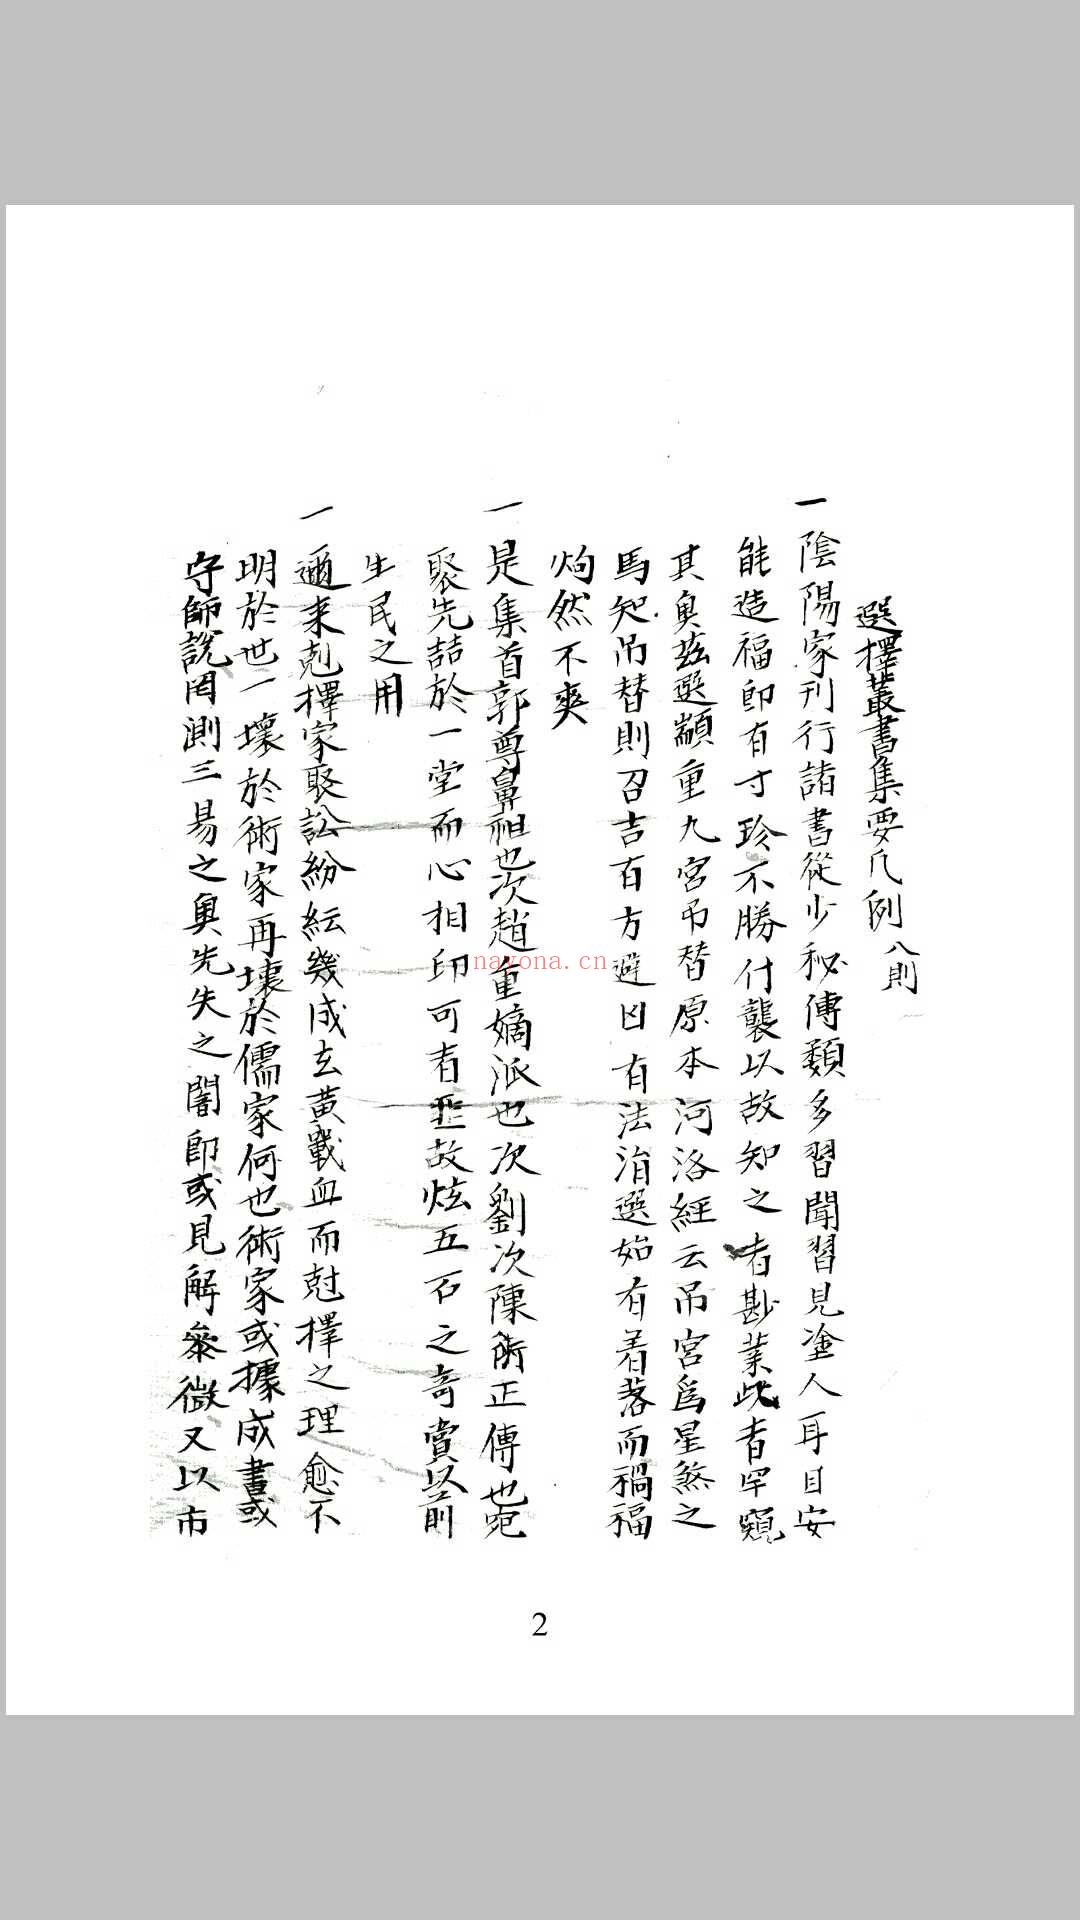 選擇叢書集要凡例 八則
一 陰陽家刊行諸書從少秘傳類多習聞習見塗人耳目安
能造福即有寸珍不勝什襲以故知之者尠業此者罕窺
其奧茲選顓重九宮吊替原本河洛經云吊宮為星煞之
馬知吊替則召吉有方避凶有法涓選始有着落而禍福
灼然不爽
一 是集首郭尊鼻祖也次趙重嫡派也次劉次陳衍正傳也宛
聚先喆於一堂而心相印可者匪故炫五石之奇賞堅前
生民之用
一 邇来剋擇家聚訟紛紜幾成玄黃戰血而尅擇之理愈不
明於世一壞於術家再壞於儒家何也術家或據成書或
守師說罔測三易之奧先失之闇即或見解叅微又以市
nayona.cn
2